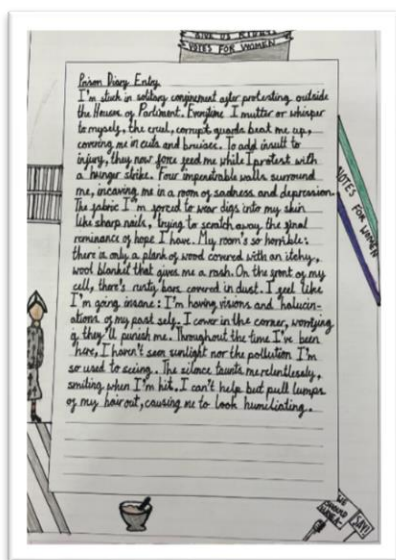 GIVE US RIGHTS
VOTES FOR WOMEN
Prison Diary Entry
I'm stuck in solitary confinement after protesting outside
the Houses of Parliment. Everytime I mutter or whisper
to myself, the cruel, corrupt guards beat me up,
covering me in cuts and bruises. To add insult to
injury, they now force feed me while I protest with
a hunger strike. Four impenetrable walls surround
me, incaving me in a room of sadness and depression.
The fabric I'm forced to wear digs into my skin
like sharp nails, trying to scratch away the final
reminance of hope I have. My room's so horrible:
there is only a plank of wood covered with an itchy,
wool blanket that gives me a rash. On the front of my
cell, there's rusty bars covered in dust. I feel like
I'm going insane: I'm having visions and halucin-
ations of my past self. I cower in the corner, worrying
if they'll punish me. Throughout the time I've been
here, I haven't seen sunlight nor the pollution I'm
so used to seeing. The silence taunts me relentlessly,
smiling when I'm hit. I can't help but pull lumps
of my hair out, causing me to look humiliating.
VOTES FOR WOMEN